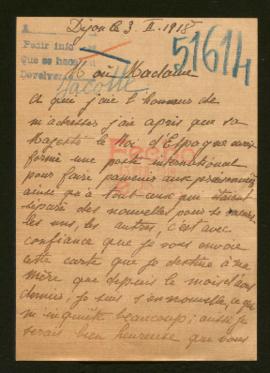 Dijon le 3. II. 1918
A
Pedir info
Que se hace
Devolver
51614
Jacotte
M ou Madame
A qui j'ai l'honneur de
m'adresser j'ai apris que sa
Majesté le Roi d'Espagne avait
formé une poste international
pour faire parvenir aux prisonniers
ainsi qu'à tout ceux qui étaient
séparé des nouvelles pour se rassurer
les uns, les autres, c'est avec
confiance que je vous envoie
cette carte que je destine à ma
mère que depuis le mois d'août
dernier, je suis s'en nouvelle, ce qui
m'inquiète beaucoup; aussi je
serais bien heureuse que vous